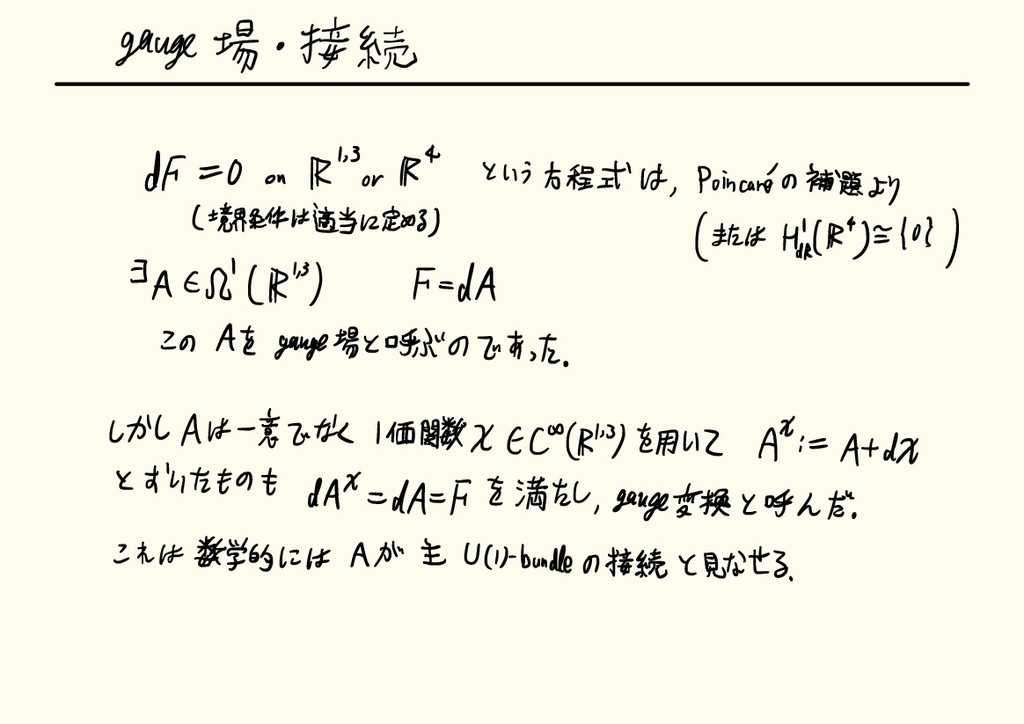 gauge 場・接続
dF = 0 on ℝ^{1,3} or ℝ^4 という方程式は, Poincaréの補題より
(境界条件は適当に定める) (または H^1_{dR}(ℝ^4)≅{0})
∃A ∈ Ω^1(ℝ^{1,3}) F = dA
この Aを gauge場と呼ぶのであった.
しかし Aは一意でなく 1価関数 χ ∈ C^∞(ℝ^{1,3}) を用いて A^χ := A + dχ
とずらしたものも dA^χ = dA = F を満たし, gauge変換と呼んだ.
これは 数学的には Aが 主 U(1)-bundle の接続と見なせる.